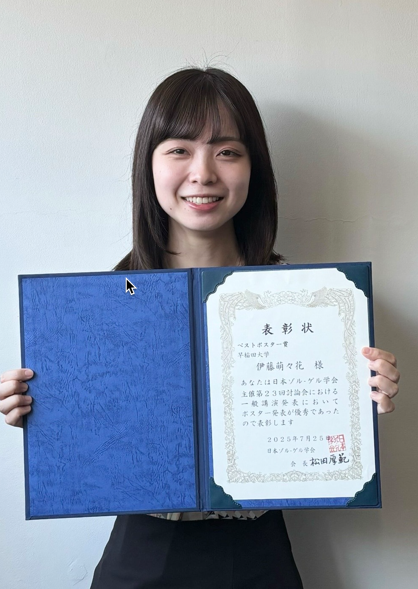 表彰状
ベストポスター賞
早稲田大学
伊藤萌々花 様
あなたは日本ゾル-ゲル学会
主催第23回討論会における
一般講演発表において
ポスター発表が優秀であった
ので表彰します
2025年7月25日
日本ゾル-ゲル学会
会長 松田厚範